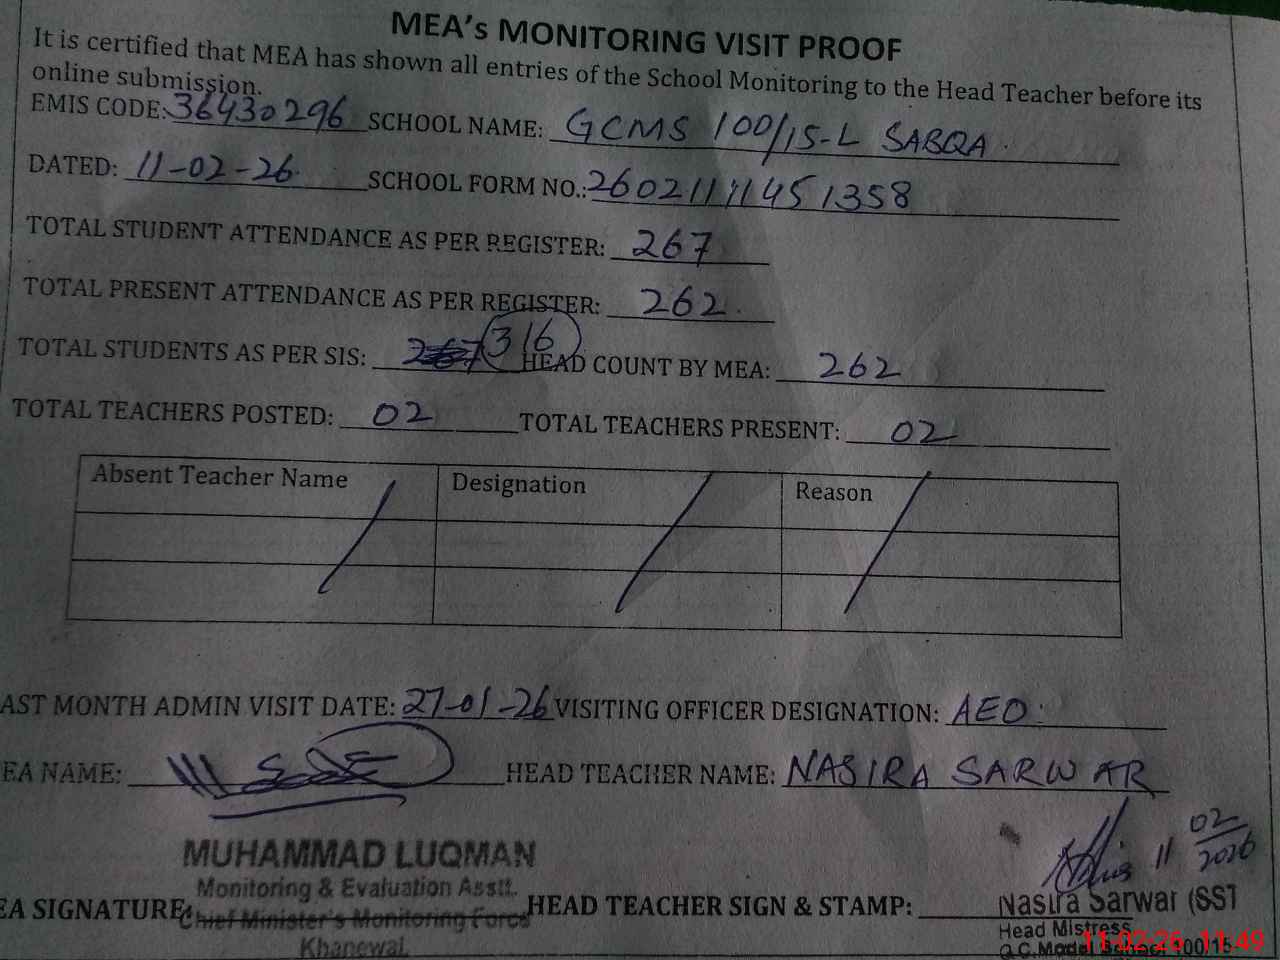 MEA's MONITORING VISIT PROOF
It is certified that MEA has shown all entries of the School Monitoring to the Head Teacher before its
online submission.
EMIS CODE: 36430296 SCHOOL NAME: GCMS 100/15-L SABQA.
DATED: 11-02-26. SCHOOL FORM NO.: 260211111451358
TOTAL STUDENT ATTENDANCE AS PER REGISTER: 267
TOTAL PRESENT ATTENDANCE AS PER REGISTER: 262.
TOTAL STUDENTS AS PER SIS: 316 HEAD COUNT BY MEA: 262
TOTAL TEACHERS POSTED: 02 TOTAL TEACHERS PRESENT: 02
Absent Teacher Name Designation Reason
AST MONTH ADMIN VISIT DATE: 27-01-26 VISITING OFFICER DESIGNATION: AEO.
EA NAME: HEAD TEACHER NAME: NASIRA SARWAR
11 02 2026
MUHAMMAD LUQMAN
Monitoring & Evaluation Asstt.
EA SIGNATURE: Chief Minister's Monitoring Force HEAD TEACHER SIGN & STAMP: Nasira Sarwar (SST
Khanewal.
Head Mistress
G.C.Model School 100/15-
11-02-26 11:49